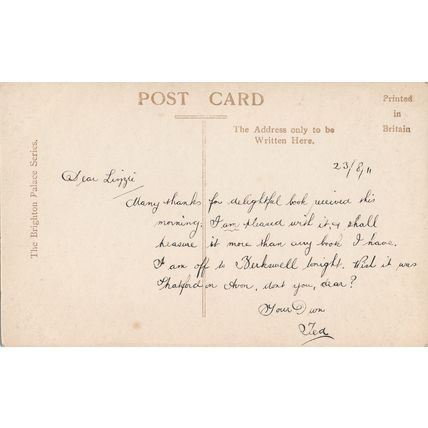 POST CARD
Printed
in
Britain
The Address only to be
Written Here.
The Brighton Palace Series.
23/8/11
Dear Lizzie
Many thanks for delightful book received this
morning. I am pleased with it, & shall
treasure it more than any book I have.
I am off to Berkswell tonight. Wish it was
Stratford on Avon, dont you, dear?
Your Own
Ted